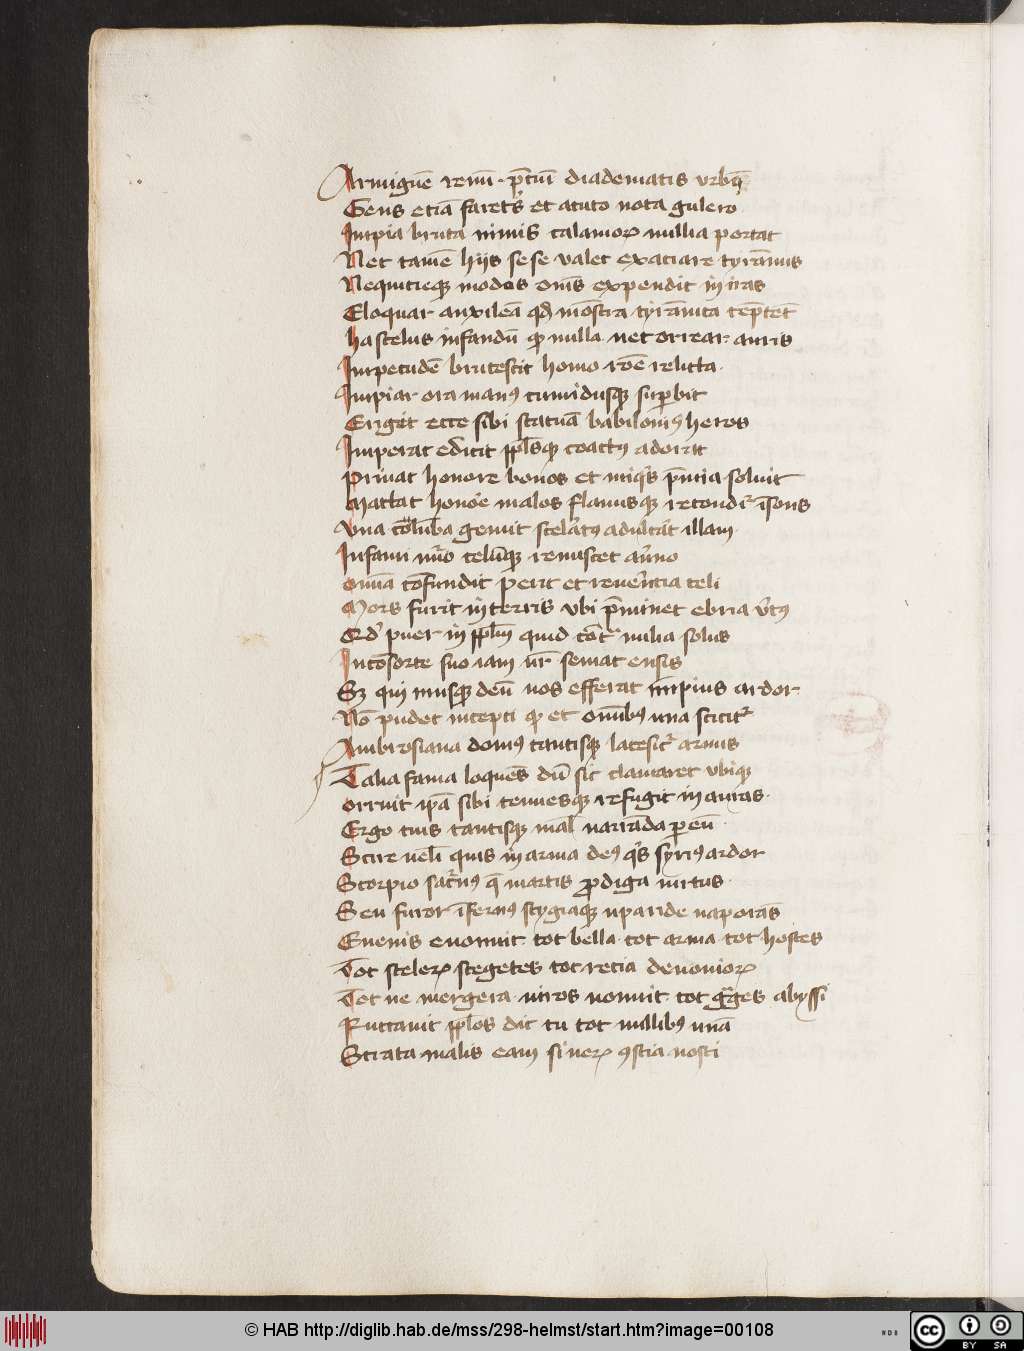 Armigūē renū p̄ciū diadematis vrbē
Gens etiā faretrꝭ et acuto nota gulero
Impia bruta nimis calamoꝝ millia portat
Nec tamē hijs sese valet exaciare tyrānnis
Nequicieqꝫ modos om̄s expendit in iras
Eloquar anxileā qđ mōstra tyrānica tēptēt
ha scelus infandū ꝙ nulla net orrear auris
Impecudē brutescit homo rōe relicta
Impiar ora manꝰ tumidusqꝫ suꝑbit
Erigit ecce sibi statuā babilonicꝰ heros
Imperat edicit pplōsqꝫ coactꝰ adorit
Priuat honore bonos et ... p̄mia soluit
Mactat honoē malos flamisqꝫ recondit̉ īsons
Vna colūba gemit scelat̉ꝰ adulterāt illam
Infami nūo celūqꝫ remiscet au̇no
omīa cōfundit perit et reuer̄ncia celi
Mors furit in terris vbi p̄minet ebria v̄tꝰ
Qd̓ puer in pplm̄ quid cōt̉ milia solus
Incōsorte suo iam vr̄ seuiat ensis
Sꝫ qui inusqꝫ deū nos efferat impius ardor
Nō pudet incepti ꝙ et omībꝰ una scicit̉
Ambrosiana domꝰ tantisqꝫ lacesit̉ armis
Talia fama loquēs dū sic clamaret vbiqꝫ
orruit ipā sibi tenuesqꝫ refugit in auras
Ergo tuis tantisqꝫ mal̄ narrāda per eū
Scire uel̄i quis in arma deꝰ qꝭ syriꝰ ardor
Scorpio sat̉nꝰ q̄ martis ꝓdiga uirtus
Seu furor īfernꝰ stygiaqꝫ uparide uaporās
Euenis euomuit tot bella tot arma tot hostes
Tot sceleꝝ stegetes tot recia demonioꝝ
Tot ne mergera uiros uomuit tot gͣges abyssi
Ructauit pplōs dic tu tot millibꝰ unā
Strata malis eam si ueꝝ ꝯscia nosti
© HAB http://diglib.hab.de/mss/298-helmst/start.htm?image=00108
WDB
cc
BY SA